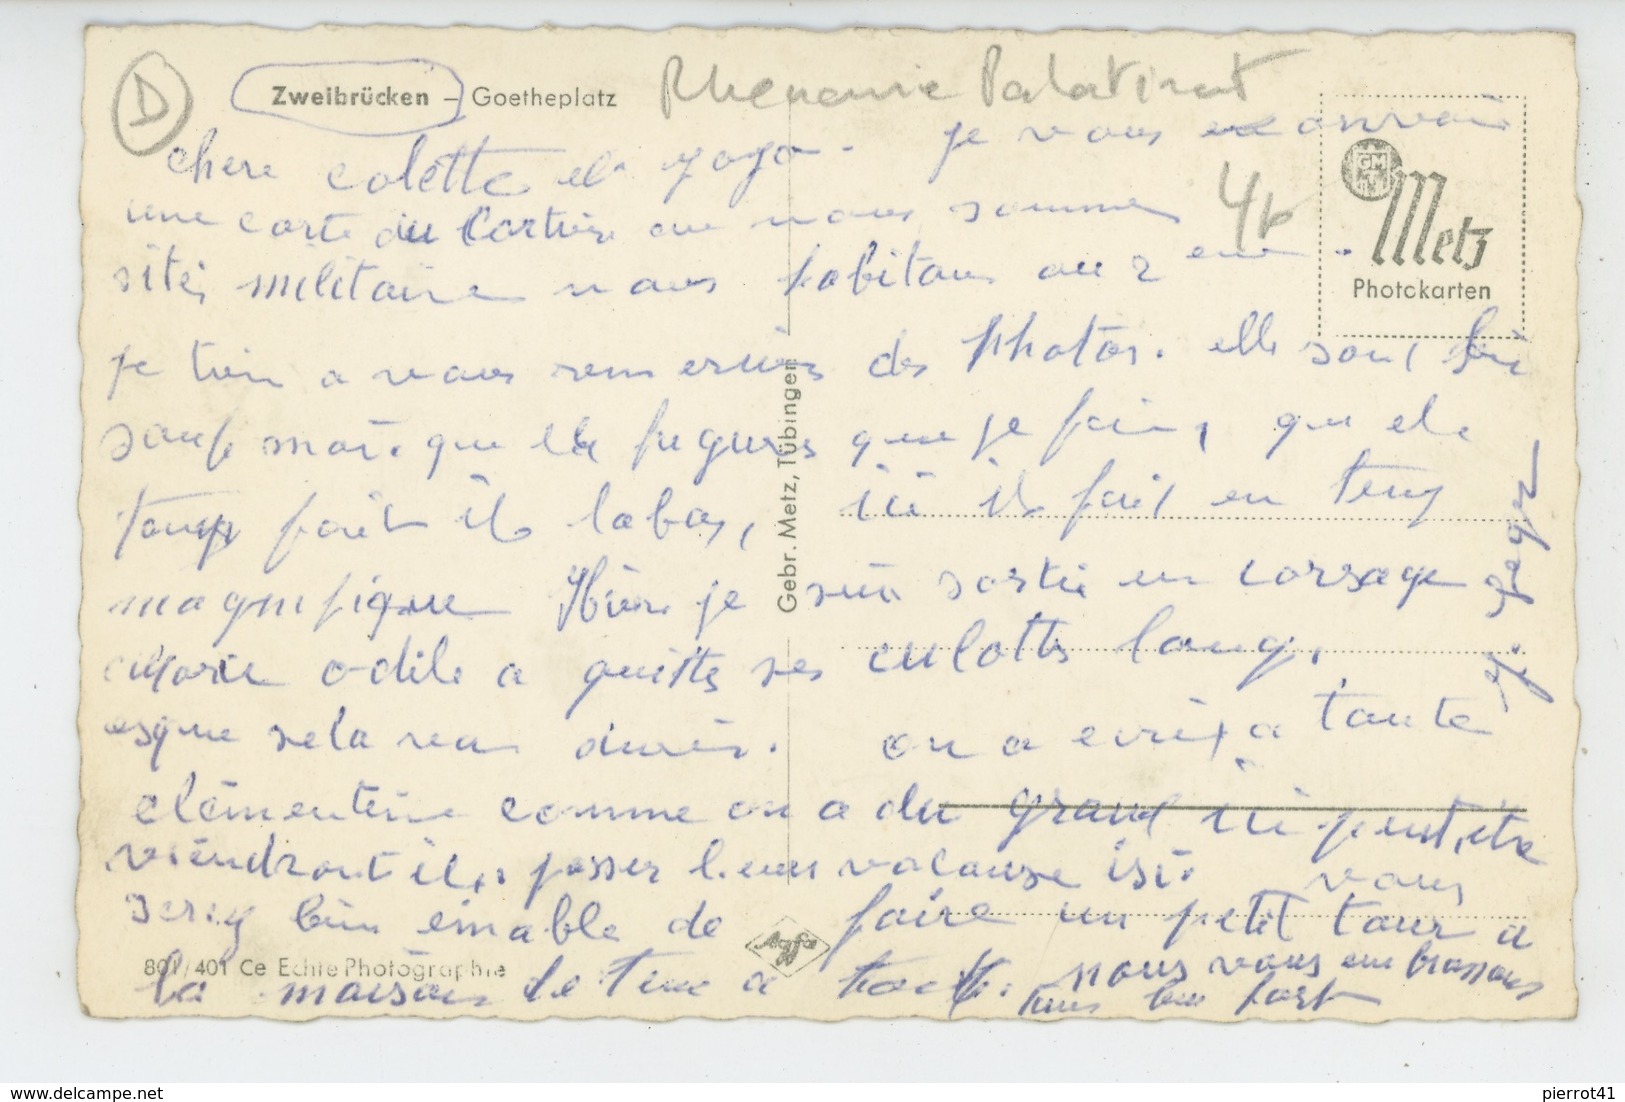 D
Zweibrücken – Goetheplatz
Rhenanie Palatinat
4k
GM
Metz
Photokarten
chere colette et yoyo. je vous
une carte du Cartier ou nous sommes
sités militaire nous habitons au 2 eme.
je tien a vous remercier des Photos. elle sont
sauf moi. que elle figures que je fais, que el
temps fait il labas, ici il fait un temps
magnifique Hier je suis sortie en corsage
Marie odile a quitte ses culottes longs.
esque sela vea durer. on a ecrit a Tante
clémentine comme on a du grand ici peut, etre
viendront ils passer leurs vacanse isi. vous
serez bien eimable de faire un petit tour a
la maison de tem a tack. nous vous embrassons
tous bien fort
Y. Jeger
Gebr. Metz, Tübingen
Agfa
801/401 Ce Echte Photographie
www.delcampe.net
pierrot41